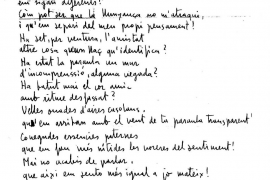 em siguin diferents!
Com pot ser que la llunyania no m'atraqui,...
i qu'em separi del meu propi pensament!
Ha set, per ventura, l'amistat
altre cosa que un llaç qu'identifica?
Ha estat la paraula un mur
d'incomprenssió, alguna vegada?
Ha batut mai el cor amic
amb ritme desfassat?
Velles onades d'aires casolans,
qu'em arriben amb el vent de ta paraula transparent!
Conegudes essencies paternes
que em fan més nítides les voreres del sentiment!
Mai no acabis de parlar,
que així em sento més igual a jo mateix!